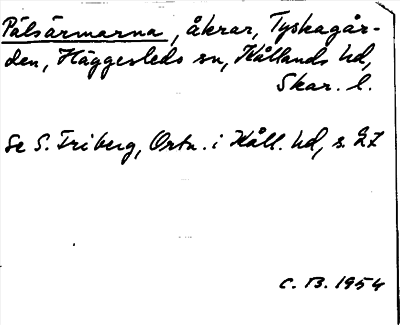 Pälsärmarna, åkrar, Tyskagår-
den, Häggesleds sn, Kållands hd,
Skar. l.
Se S. Friberg, Ortn. i Kåll. hd, s. 27
C. B. 1954